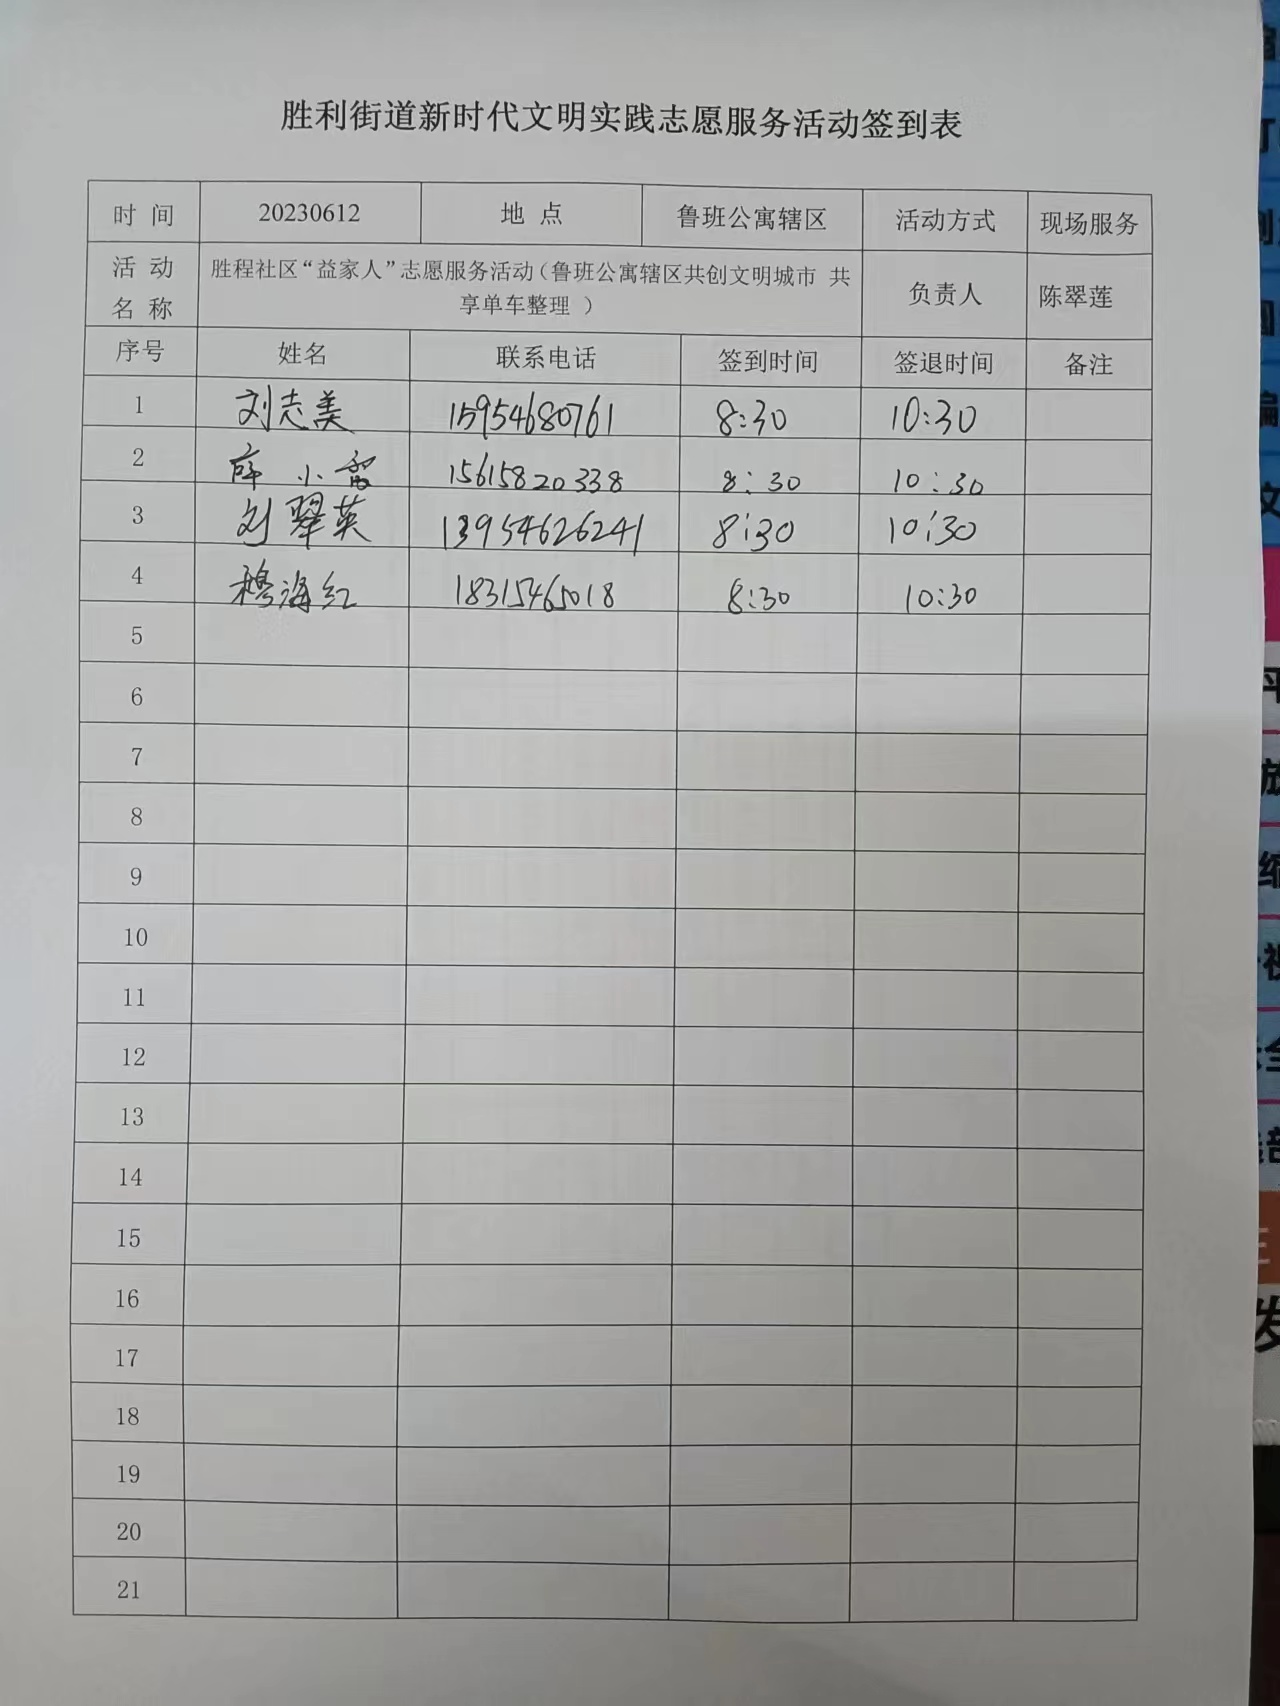 胜利街道新时代文明实践志愿服务活动签到表
时 间 20230612 地 点 鲁班公寓辖区 活动方式 现场服务
活 动 名 称 胜程社区“益家人”志愿服务活动（鲁班公寓辖区共创文明城市 共享单车整理 ） 负责人 陈翠莲
序号 姓名 联系电话 签到时间 签退时间 备注
1 刘志美 15954680761 8:30 10:30
2 薛小雪 15615820338 8:30 10:30
3 刘翠英 13954626241 8:30 10:30
4 穆海红 18315465018 8:30 10:30
5
6
7
8
9
10
11
12
13
14
15
16
17
18
19
20
21